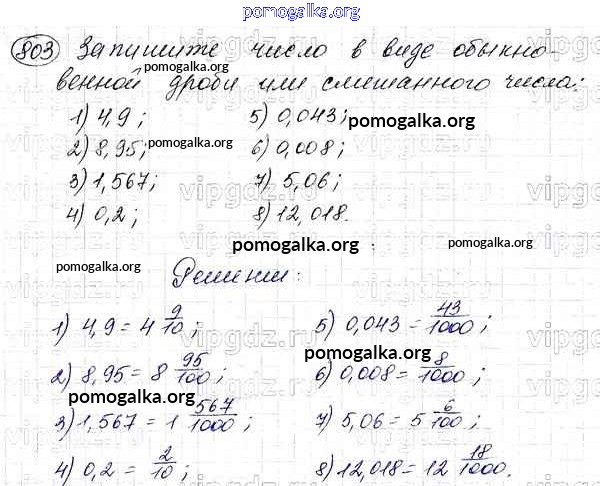 pomogalka.org
803 Запишите число в виде обыкно-
pomogalka.org
венной дроби или смешанного числа:
pomogalka.org
1) 4,9; 5) 0,043;
pomogalka.org
2) 8,95; 6) 0,008;
pomogalka.org
3) 1,567; 7) 5,06;
4) 0,2; 8) 12,018.
pomogalka.org
pomogalka.org
Решение:
1) 4,9 = 4 9/10; 5) 0,043 = 43/1000;
pomogalka.org
2) 8,95 = 8 95/100; 6) 0,008 = 8/1000;
pomogalka.org
3) 1,567 = 1 567/1000; 7) 5,06 = 5 6/100;
4) 0,2 = 2/10; 8) 12,018 = 12 18/1000.